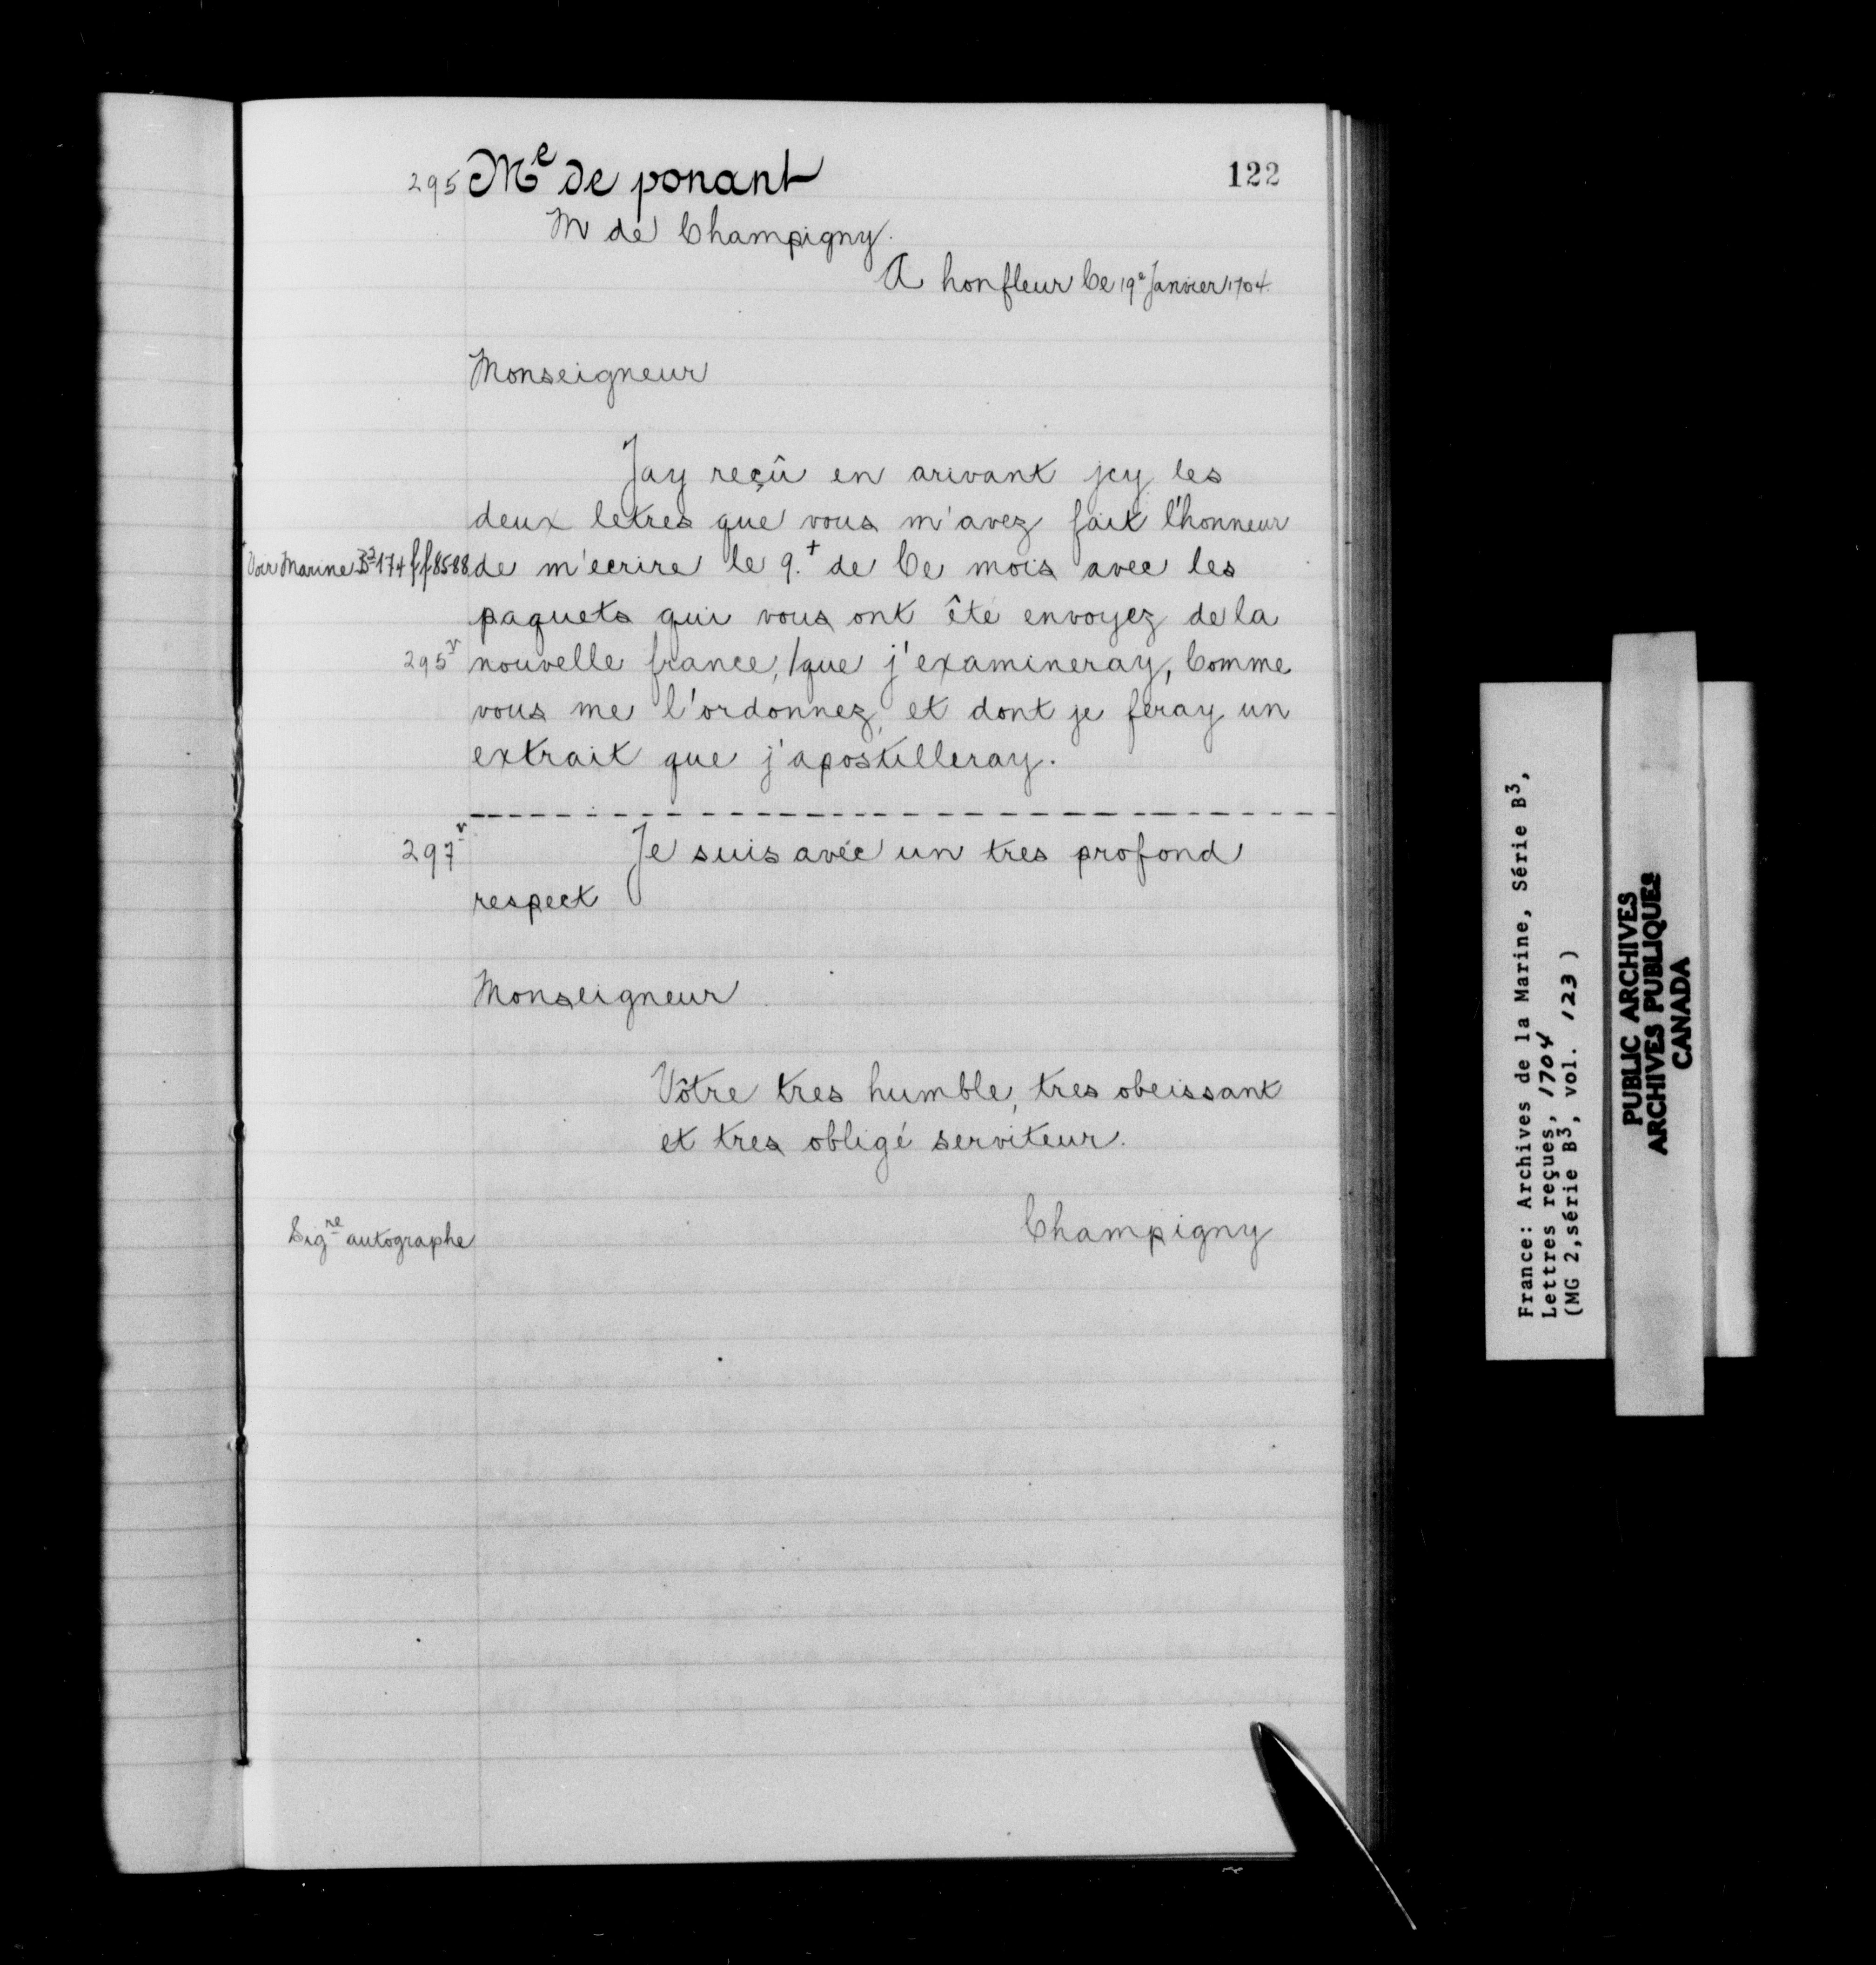 122
295 Me de ponant
M de Champigny.
A honfleur Ce 19e Janvier 1704.
Monseigneur
Jay reçû en arivant jcy les
deux letres que vous m'avez fait l'honneur
Voir Marine B2 174 ff 85 88 de m'ecrire le 9.+ de Ce mois avec les
paquets qui vous ont êté envoyez de la
295v nouvelle france, /que j'examineray, Comme
vous me l'ordonnez, et dont je feray un
extrait que j'apostilleray.
297v Je suis avec un tres profond
respect
Monseigneur
Vôtre tres humble, tres obeissant
et tres obligé serviteur.
Sigre autographe Champigny
France: Archives de la Marine, Série B3,
Lettres reçues, 1704
(MG 2, série B3, vol. 123 )
PUBLIC ARCHIVES
ARCHIVES PUBLIQUES
CANADA